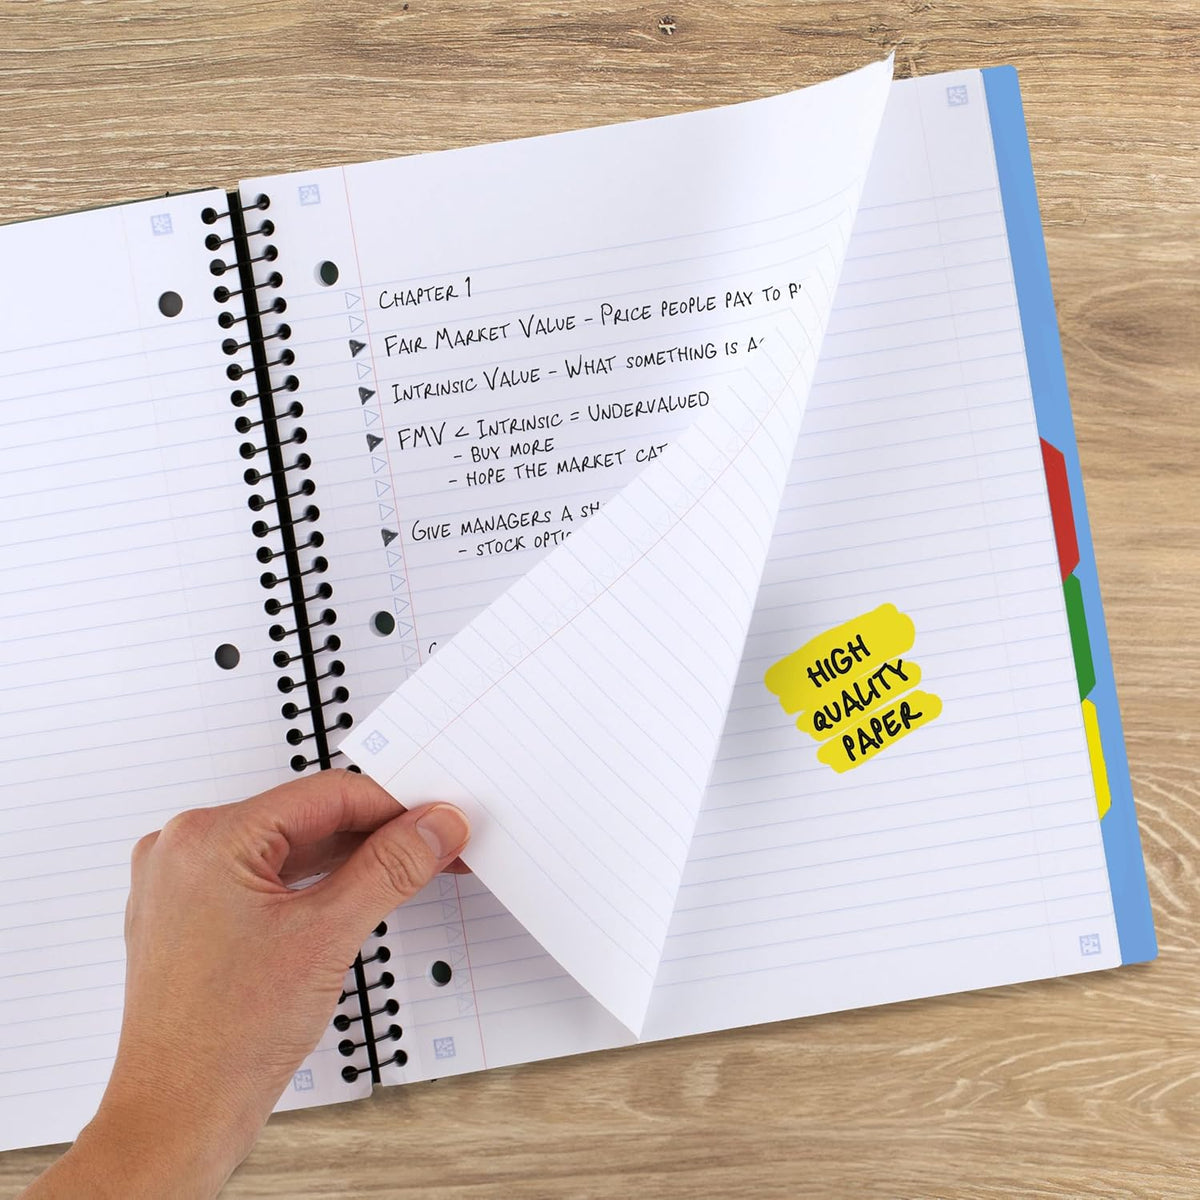 CHAPTER 1
FAIR MARKET VALUE - PRICE PEOPLE PAY TO
INTRINSIC VALUE - WHAT SOMETHING IS
FMV < INTRINSIC = UNDERVALUED
- BUY MORE
- HOPE THE MARKET CAT
GIVE MANAGERS A SH
- STOCK OPTI
HIGH
QUALITY
PAPER